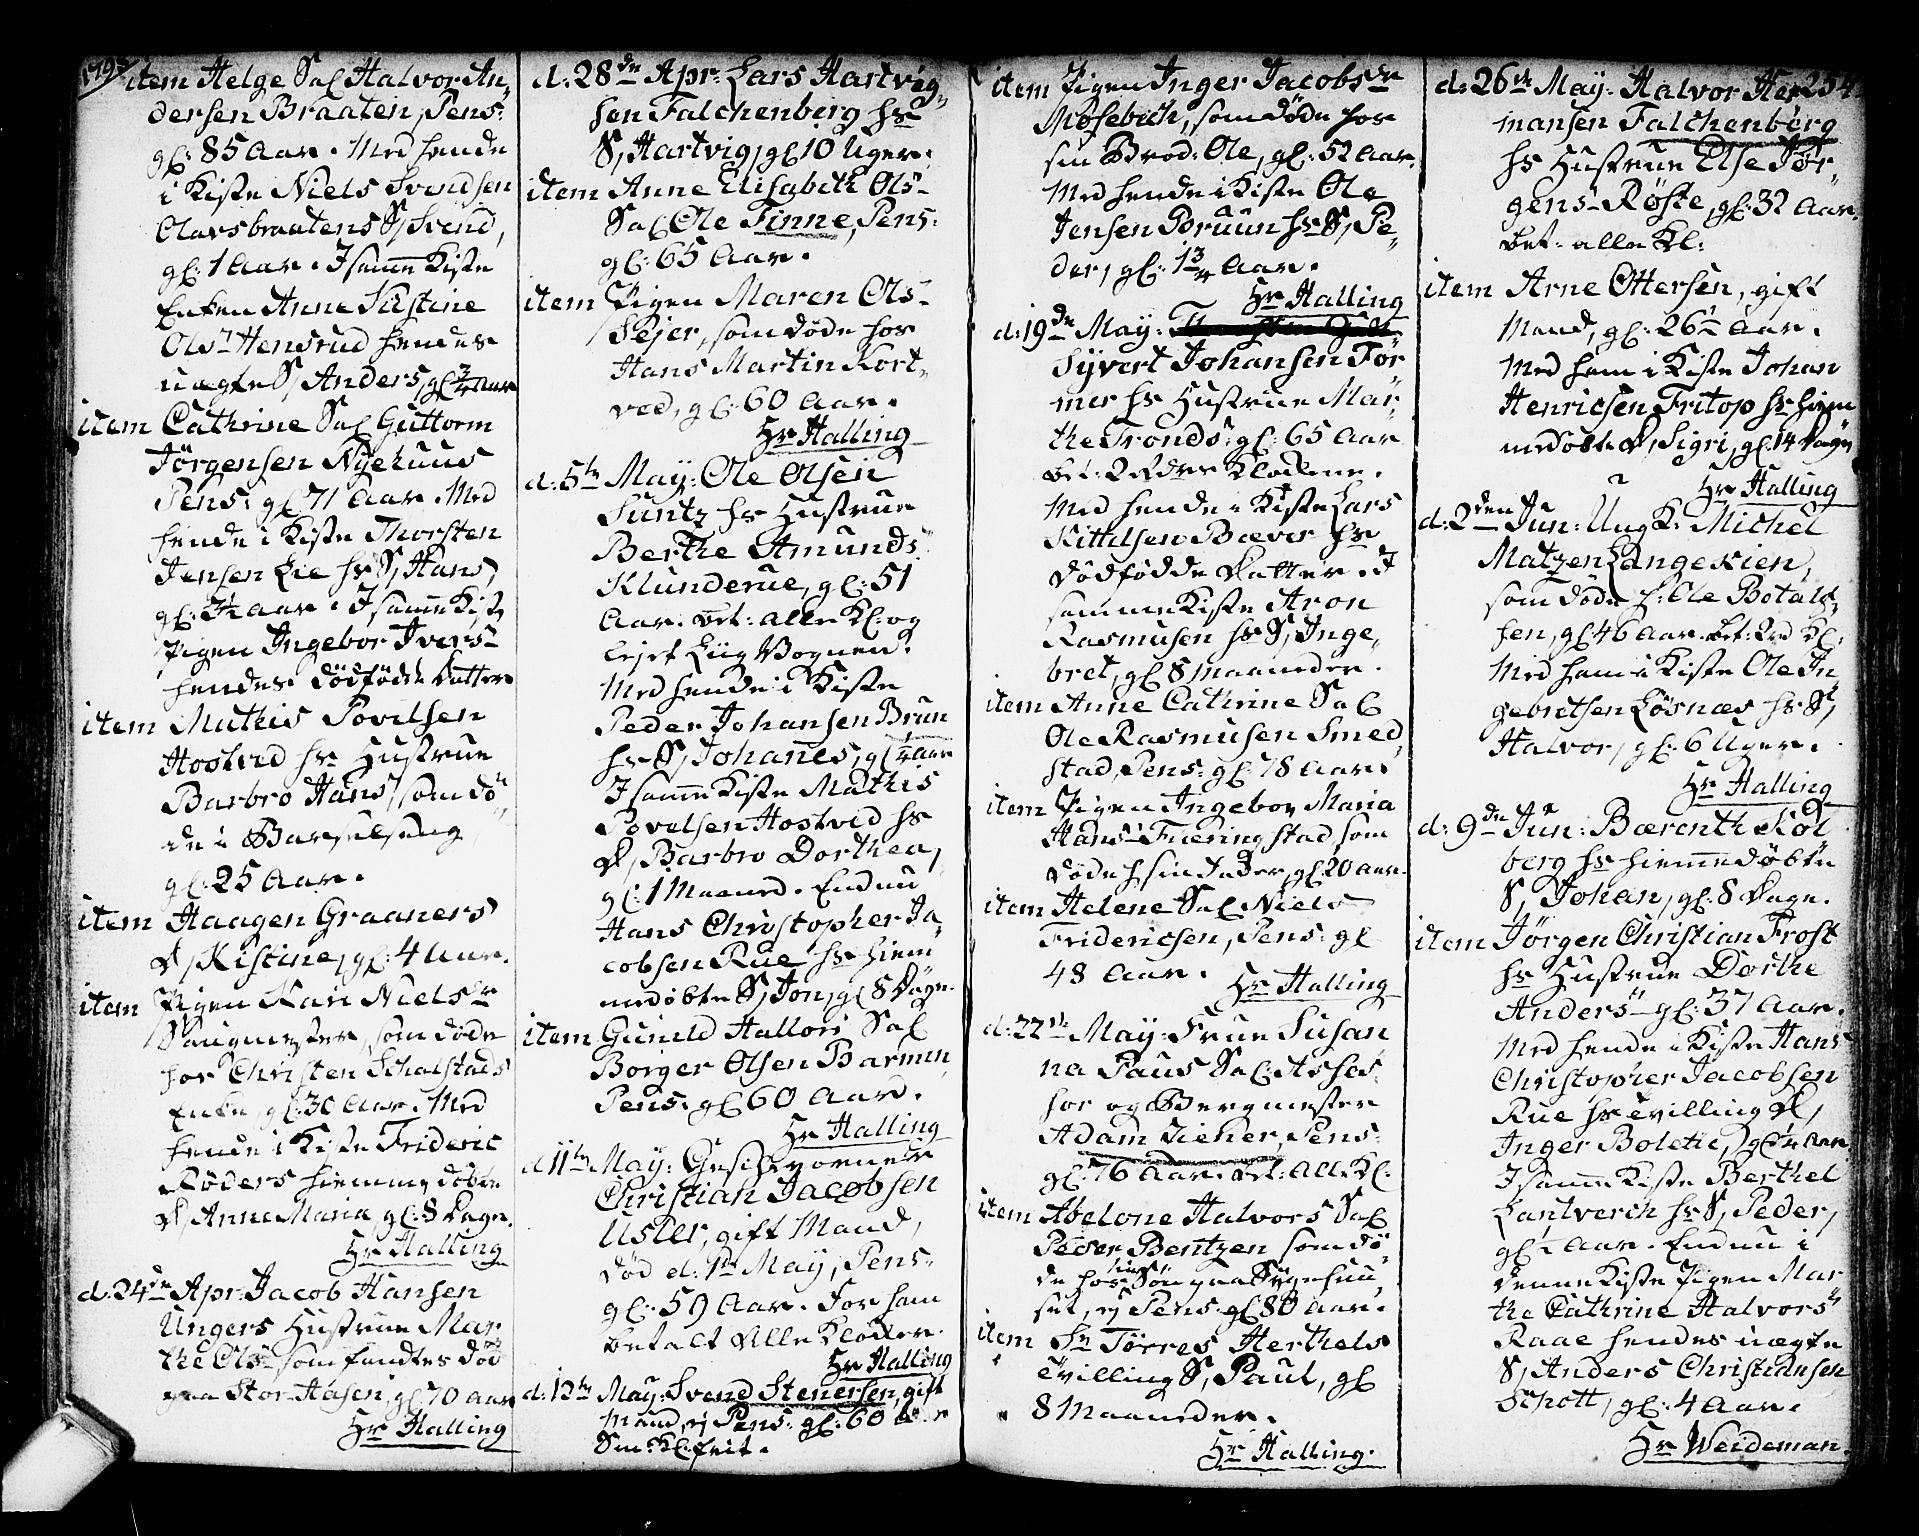 1793
item Helge Sal Halvor An-
dersen Braaten, Pens:
gl: 85 Aar. Med hende
i Kiste Niels Svendsen
Olavsbraatens S, Svend,
gl: 1 Aar. I samme Kiste
Enken Anne Kistine
Olsr Hensrud hendes
uægte S, Anders, gl 3/4 Aar
item Cathrine Sal Guttorm
Jørgensen Nyehuus
Pens: gl 71 Aar. Med
hende i Kiste Thorsten
Jensen Lie hs S, Hans,
gl: 3½ Aar. I samme Kiste
Pigen Ingebor Ivers-
hendes dødfødde Datter
item Mathis Povelsen
Hostvid hs Hustrue
Barbro Hans, som dø-
de i Barselseng,
gl: 25 Aar.
item Haagen Graaners
D, Kistine, gl: 4 Aar.
item Pigen Kari Nielsdr
Saugmester, som døde
hos Christen Schalstads
Enke, gl: 30 Aar. Med
hende i Kiste Frideric
Røders hiemmedøbte
D, Anne Maria, gl: 8 Dage.
Hr Halling
d: 24de Apr: Jacob Hansen
Ungers Hustrue Mar
the Ols- som fandtes død
paa Stor-Aasen, gl: 70 Aar
Hr Halling
d: 28de Apr: Lars Hartvig-
sen Falchenberg hs
S, Hartvig, gl 10 Uger.
item Anne Elisabeth Ols-
Sal Ole Finne, Pens:
gl: 65 Aar.
item Pigen Maren Ols-
Sejer, som døde hos
Hans Martin Kort-
ved, gl: 60 Aar.
Hr Halling
d: 5te May: Ole Olsen
Suntz hs Hustrue
Berthe Amunds
Klunderue, gl: 51
Aar. bet: alle Kl: og
lejet Liig Vognen.
Med hende i Kiste
Peder Johansen Brun
hs S, Johanes, gl ¼ Aar
I samme Kiste Mathis
Povelsen Hostvid hs
D, Barbro Dorthea,
gl: 1 Maaned. Endnu
Hans Christopher Ja
cobsen Rue hs hiem
medøbte S, Jon, gl 8 Dage.
item Gunild Hallors Sal
Borger Olsen Barmen,
Pens: gl 60 Aar.
Hr Halling
d: 11te May: Geschvorner
Christian Jacobsen
Usler, gift Mand,
død d: 1te May, Pens-
gl: 59 Aar. For ham
betalt Alle Klokker.
Hr Halling
d: 12te May: Svend Stenersen, gift
Mand, ej Pens: gl: 60 Aar
Sm: Kl: frit.
item Pigen Inger Jacobsdr
Møsebeck, som døde hos
sin Brod: Ole, gl: 52 Aar.
Med hende i Kiste Ole
Jensen Bruun hs S, Pe-
der, gl: 1¾ Aar.
Hr Halling
d: 19de May:
Syvert Johansen Tør
mer hs Hustrue Mar-
the Tronds: gl: 65 Aar
bet: 2 Klokkene.
Med hende i Kiste Lars
Kittilsen Bæver hs
dødfødde Datter. I
samme Kiste Aron
Rasmusen hs S, Inge-
bret, gl 8 Maaneder.
item Anne Cathrine Sal
Ole Rasmusen Smed
stad, Pens: gl: 78 Aar.
item Pigen Ingebor Maria
Hans- Fueringstad som
døde h sin Fader, gl 20 Aar.
item Helene Sal Niels
Fridericsen, Pens: gl
48 Aar.
Hr Halling
d: 22de May: Frue Susan
na Paus Sal: Asses-
sor og Bergmester
Adam Ziener, Pens:
gl: 76 Aar. bet: alle Kl:
item Abelone Halvors Sal
Peder Bentzen som dø-
de hos sin Søn paa Sygehuu-
set, ej Pens: gl 80 Aar.
item Sr Tørres Herthels
tvilling S, Paul, gl
8 Maaneder.
Hr Halling.
254
d: 26de May. Halvor Her-
mansen Falchenberg
hs Hustrue Else Jør-
gens- Røste, gl: 32 Aar.
bet: alle Kl:
item Arne Ottersen, gift
Mand, gl: 26½ Aar.
Med ham i Kiste Johan
Henricsen Fritop hs hiem
medøbte D, Sigri, gl: 14 Dage
Hr Halling
d: 2den Jun: Ung K: Michel
Matzen Langekien,
som døde h: Ole Botals-
sen, gl 46 Aar. bet: Kl:
Med ham i Kiste Ole In-
gebretsen Løsnæs hs S,
Halvor, gl: 6 Uger.
Hr Halling
d: 9de Jun: Bærenth Kol
berg hs hiemmedøbte
S, Johan, gl: 8 Dage.
item Jørgen Christian Frost
hs Hustrue Dorthe
Anders- gl: 37 Aar.
Med hende i Kiste Hans
Christopher Jacobsen
Rue hs tvilling D,
Inger Bolette, gl ¼ Aar
I samme Kiste Berthel
Lantverch hs S, Peder,
gl ½ Aar. Endnu i
denne Kiste Pigen Mar
the Cathrine Halvors-
Raae hendes uægte
S, Anders Christiansen
Schott, gl: 4 Aar.
Hr Weideman.